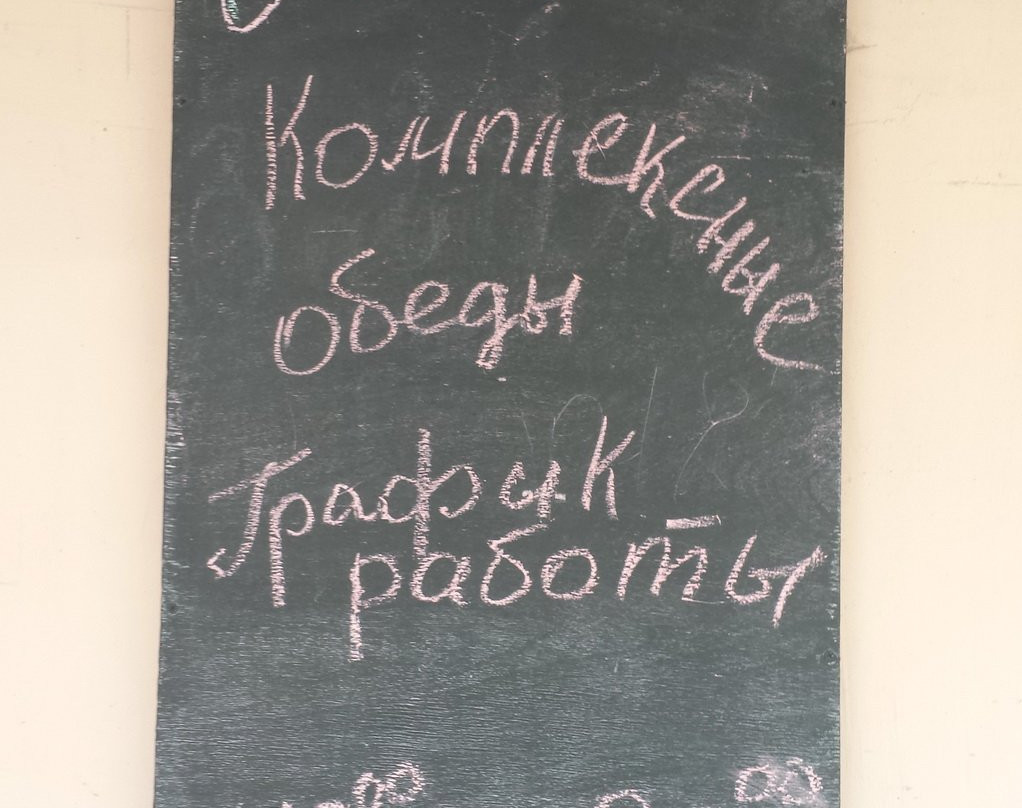 Комплексные
обеды
График
работы